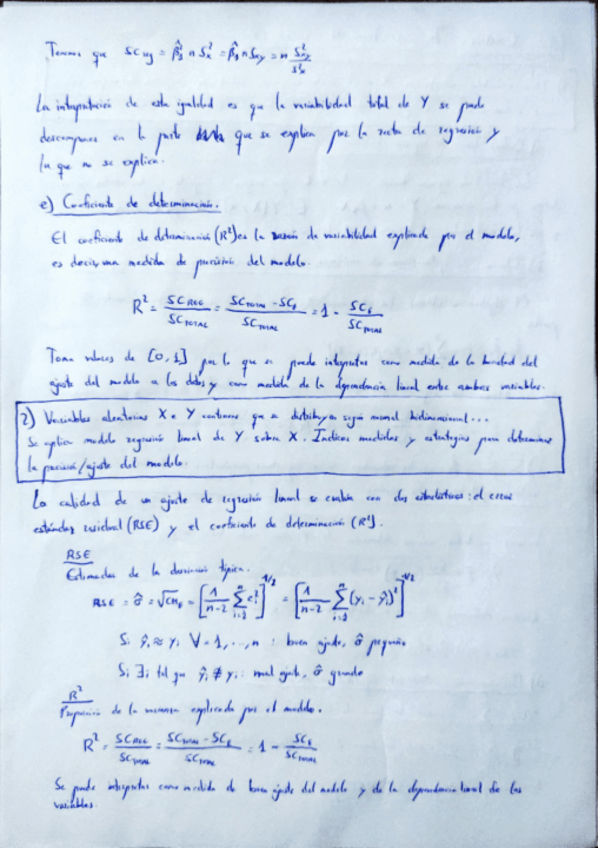 Tenemos que SC_reg = β̂₁² n S_x² = β̂₁ n S_xy = n S²_xy / S²_x
La interpretación de esta igualdad es que la variabilidad total de Y se puede
descomponer en la parte que se explica por la recta de regresión y
la que no se explica.
e) Coeficiente de determinación.
El coeficiente de determinación (R²) es la razón de variabilidad explicada por el modelo,
es decir, una medida de precisión del modelo.
R² = SC_REG / SC_TOTAL = (SC_TOTAL - SC_E) / SC_TOTAL = 1 - SC_E / SC_TOTAL
Toma valores de [0,1] por lo que se puede interpretar como medida de la bondad del
ajuste del modelo a los datos y como medida de la dependencia lineal entre ambas variables.
2) Variables aleatorias X e Y continuas que se distribuyen según normal bidimensional...
Se aplica modelo regresión lineal de Y sobre X. Índices medidas y estrategias para determinar
la precisión/ajuste del modelo.
La calidad de un ajuste de regresión lineal se evalúa con dos estadísticos: el error
estándar residual (RSE) y el coeficiente de determinación (R²).
RSE
Estimador de la desviación típica.
RSE = σ̂ = √CM_E = [1/(n-2) Σ_{i=1}^n e_i²]^{1/2} = [1/(n-2) Σ_{i=1}^n (y_i - ŷ_i)²]^{1/2}
Si ŷ_i ≈ y_i ∀ = 1, ..., n : buen ajuste, σ̂ pequeño
Si ∃i tal que ŷ_i ≠ y_i : mal ajuste, σ̂ grande
R²
Proporción de la varianza explicada por el modelo.
R² = SC_REG / SC_TOTAL = (SC_TOTAL - SC_E) / SC_TOTAL = 1 - SC_E / SC_TOTAL
Se puede interpretar como medida de buen ajuste del modelo y de la dependencia lineal de las
variables.